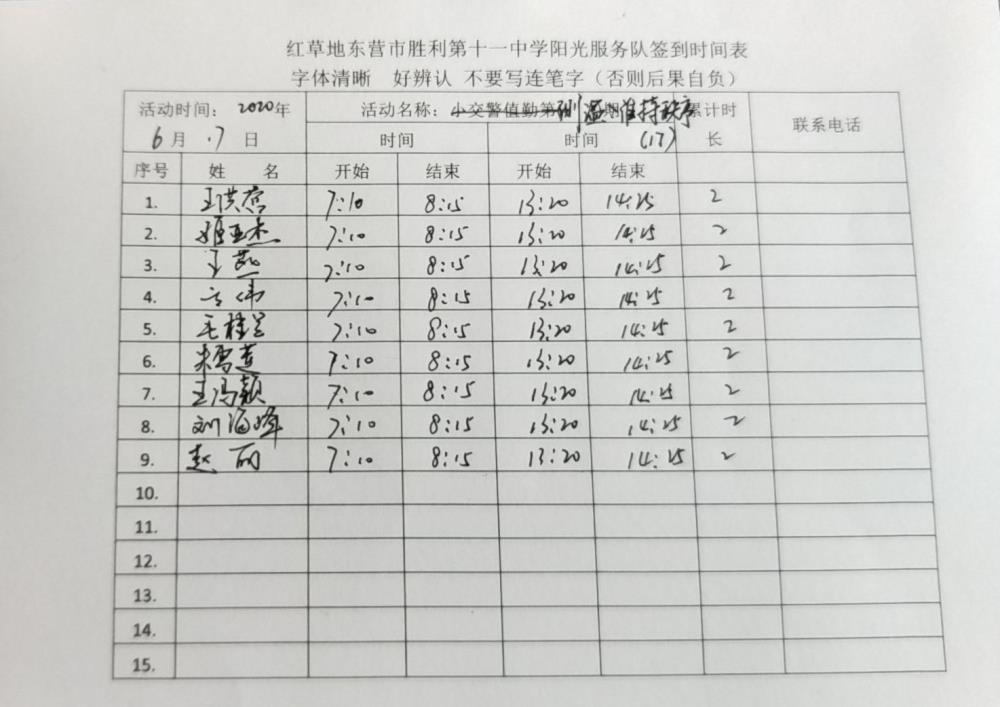 红草地东营市胜利第十一中学阳光服务队签到时间表
字体清晰 好辨认 不要写连笔字（否则后果自负）
活动时间： 2020年 活动名称： 小交警值勤第 测温 维持秩序 期 累计时 联系电话
6月17日 时间 时间 (17) 长
序号 姓 名 开始 结束 开始 结束
1. 王洪营 7:10 8:15 13:20 14:25 2
2. 姬亚杰 7:10 8:15 13:20 14:25 2
3. 王燕 7:10 8:15 13:20 14:25 2
4. 伟 7:10 8:15 13:20 14:25 2
5. 毛桂兰 7:10 8:15 13:20 14:25 2
6. 雪莲 7:10 8:15 13:20 14:25 2
7. 王冯颖 7:10 8:15 13:20 14:25 2
8. 刘海峰 7:10 8:15 13:20 14:25 2
9. 赵丽 7:10 8:15 13:20 14:25 2
10.
11.
12.
13.
14.
15.